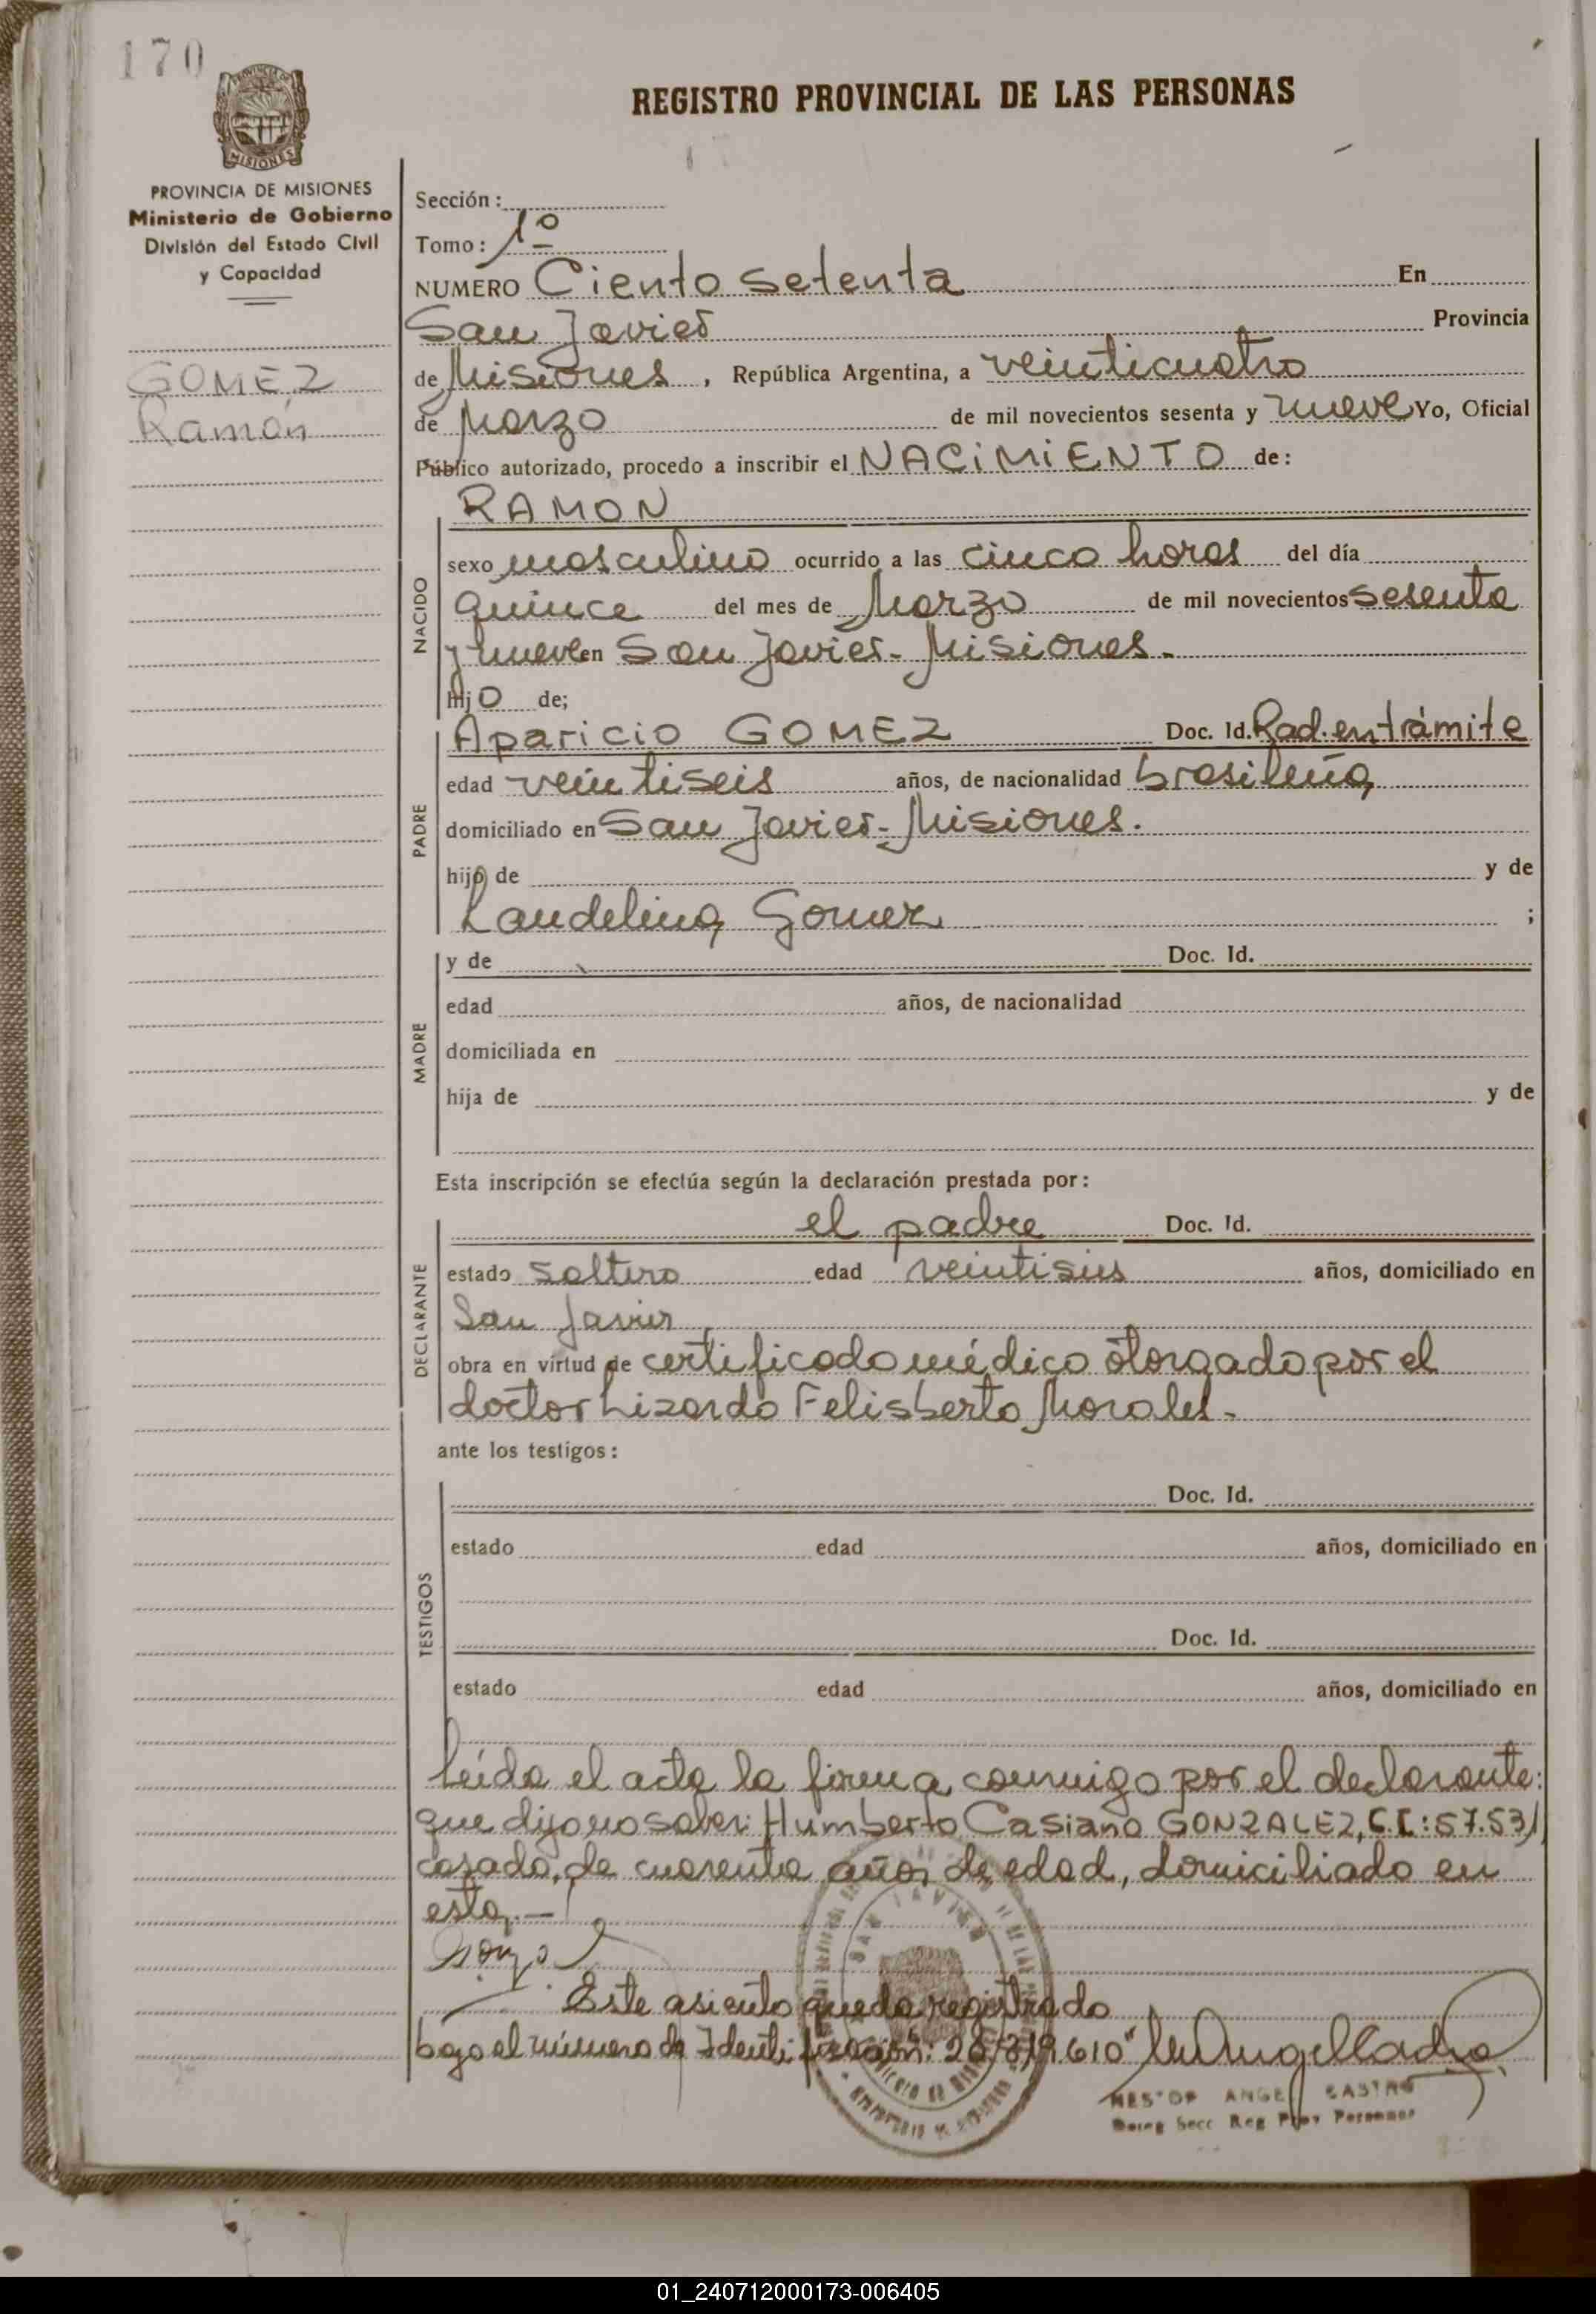 170
REGISTRO PROVINCIAL DE LAS PERSONAS
MISIONES
PROVINCIA DE MISIONES
Ministerio de Gobierno
División del Estado Civil
y Capacidad
GOMEZ
Ramón
Sección:
Tomo: 1º
NUMERO Ciento setenta En
San Javier Provincia
de Misiones, República Argentina, a veinticuatro
de Marzo de mil novecientos sesenta y nueve Yo, Oficial
Público autorizado, procedo a inscribir el NACIMIENTO de:
NACIDO
RAMON
sexo masculino ocurrido a las cinco horas del día
quince del mes de Marzo de mil novecientos sesenta
y nueve en San Javier - Misiones.-
hijo de;
PADRE
Aparicio GOMEZ Doc. Id. Rad. en trámite
edad veintiseis años, de nacionalidad brasileña
domiciliado en San Javier - Misiones.
hijo de y de
Laudelina Gomez ;
MADRE
y de Doc. Id.
edad años, de nacionalidad
domiciliada en
hija de y de
Esta inscripción se efectúa según la declaración prestada por:
DECLARANTE
el padre Doc. Id.
estado soltero edad veintiseis años, domiciliado en
San Javier
obra en virtud de certificado médico otorgado por el
doctor Lizardo Felisberto Morales.-
ante los testigos:
TESTIGOS
Doc. Id.
estado edad años, domiciliado en
Doc. Id.
estado edad años, domiciliado en
Leida el acta la firma conmigo por el declarante:
que dijo no saber: Humberto Casiano GONZALEZ, C.I: 57.531
casado, de cuarenta años de edad, domiciliado en
esta.-
Este asiento queda registrado
bajo el número de Identificación: 20.819.610"
SAN JAVIER
NESTOR ANGEL CASTRO
Secc Reg Prov Personas
01_240712000173-006405